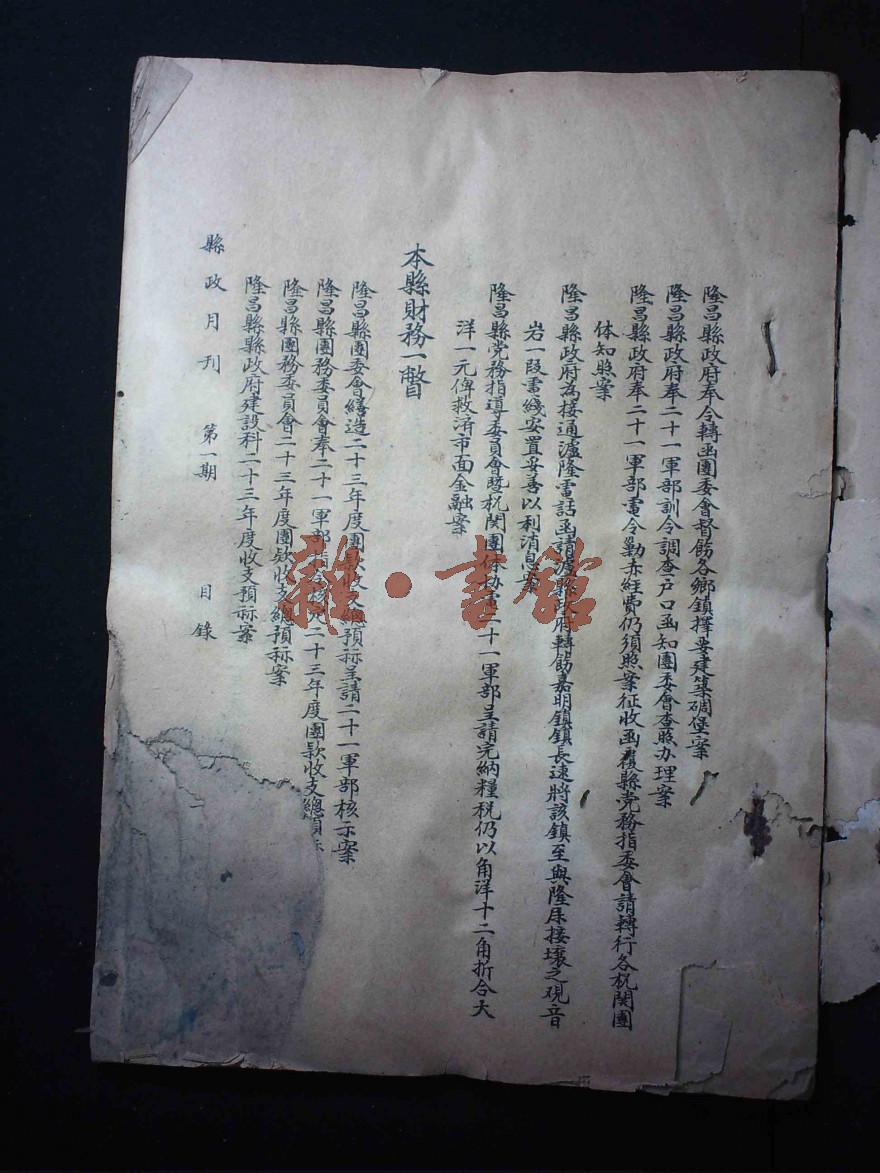 隆昌縣政府奉令轉函團委會督飭各鄉鎮擇要建築碉堡案
隆昌縣政府奉二十一軍部訓令調查戶口函知團委會查照办理案
隆昌縣政府奉二十一軍部電令勦赤經費仍須照案征收函覆縣党務指委會請轉行各机関團
体知照案
隆昌縣政府為接通瀘隆電話函請瀘縣政府轉飭嘉明鎮鎮長速將該鎮至與隆昌接壤之观音
岩一段電綫安置妥善以利消息案
隆昌縣党務指導委員會暨机関團体協電二十一軍部呈請完納糧稅仍以角洋十二角折合大
洋一元俾救済市面金融案
本縣財務一瞥
隆昌縣團委會繕造二十三年度團款收支總預祘呈請二十一軍部核示案
隆昌縣團務委員會奉二十一軍部指令核定二十三年度團款收支總預祘
隆昌縣團務委員會二十三年度團欵收支總預祘案
隆昌縣縣政府建設科二十三年度收支預祘案
縣政月刊 第一期 目錄
雜·書館